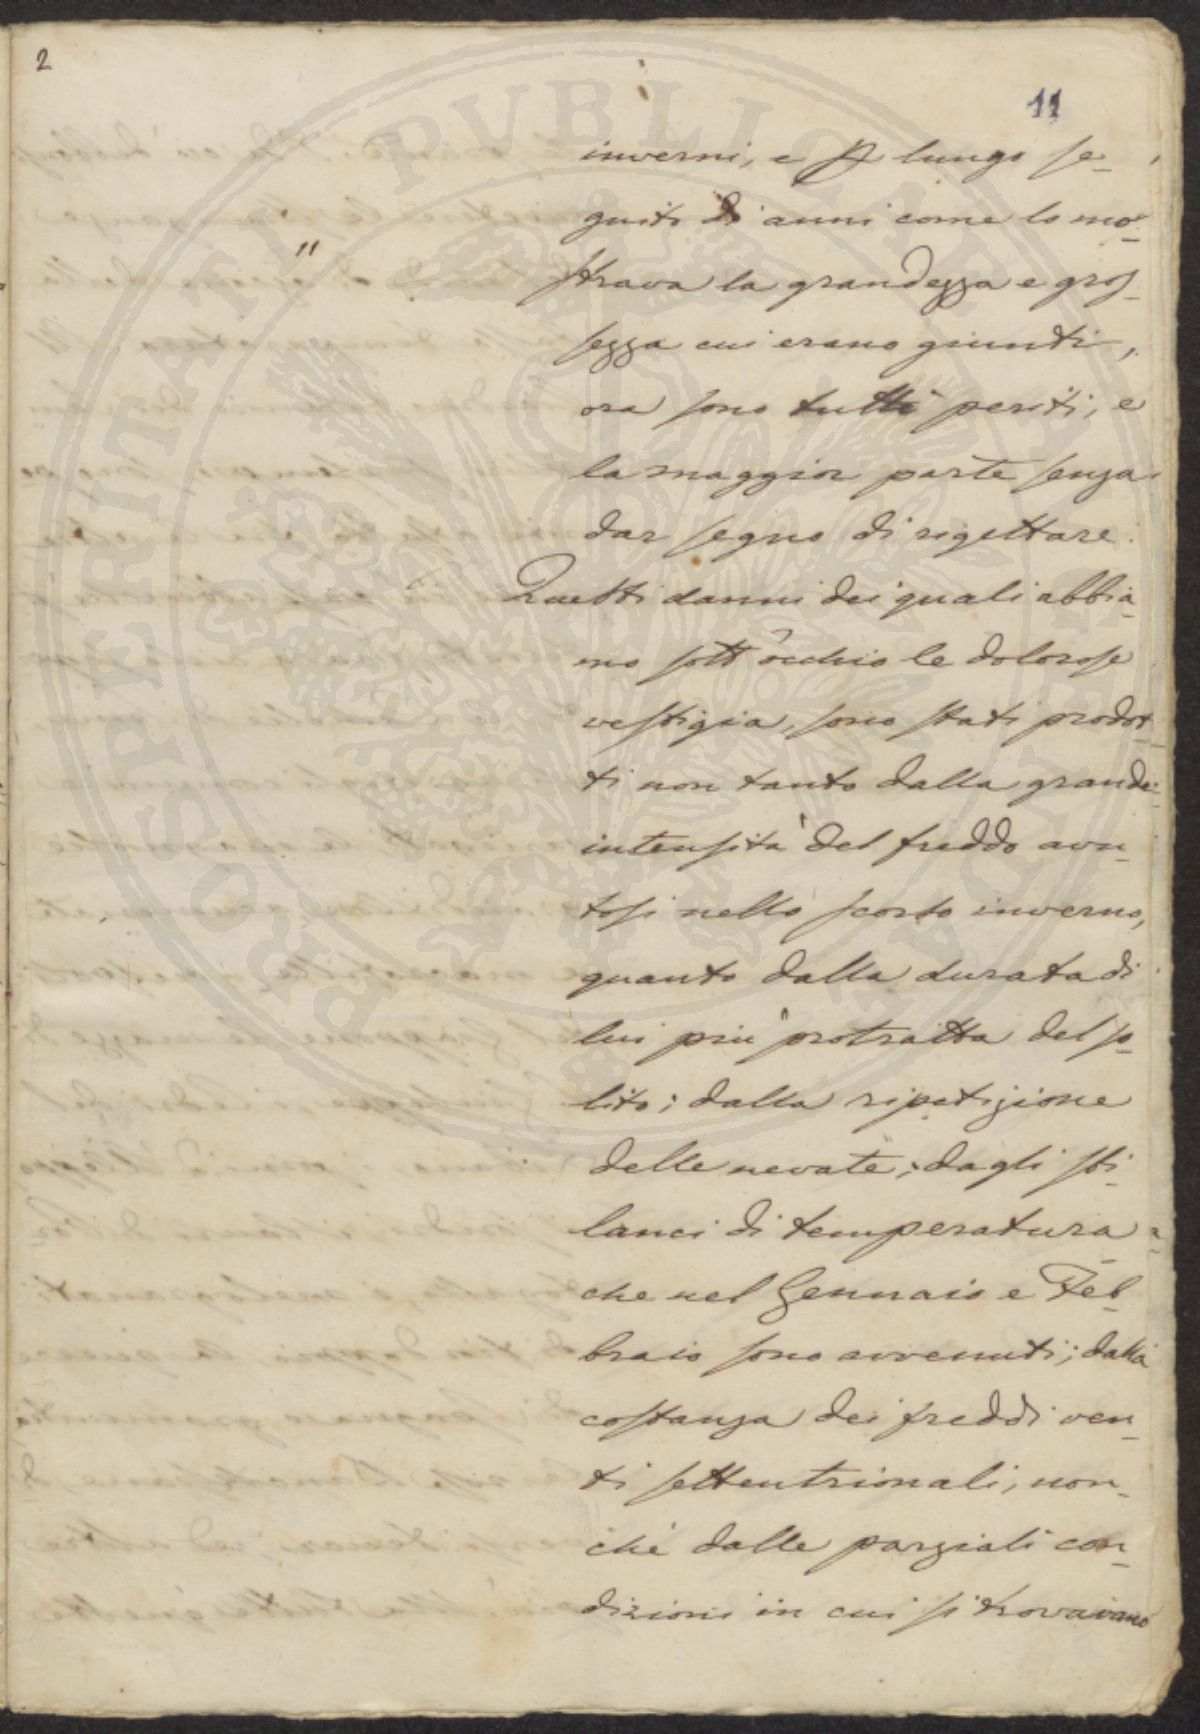 2
11
inverni, e p lungo se-
guito di anni come lo mo-
"
strava la grandezza e gros-
sezza cui erano giunti,
ora sono tutti periti, e
la maggior parte senza
dar segno di rigettare.
Questi danni dei quali abbia-
mo sott'occhio le dolorose
vestigia, sono stati prodot-
ti non tanto dalla grande
intensità del freddo avu-
tosi nello scorso inverno,
quanto dalla durata di
lui più protratta del so-
lito; dalla ripetizione
delle nevate; dagli sbi-
lanci di temperatura
che nel Gennaio e Feb-
braio sono avvenuti; dalla
costanza dei freddi ven-
ti settentrionali, non-
chè dalle parziali con-
dizioni in cui si trovavano
PROSPERITATI PVBLICAE